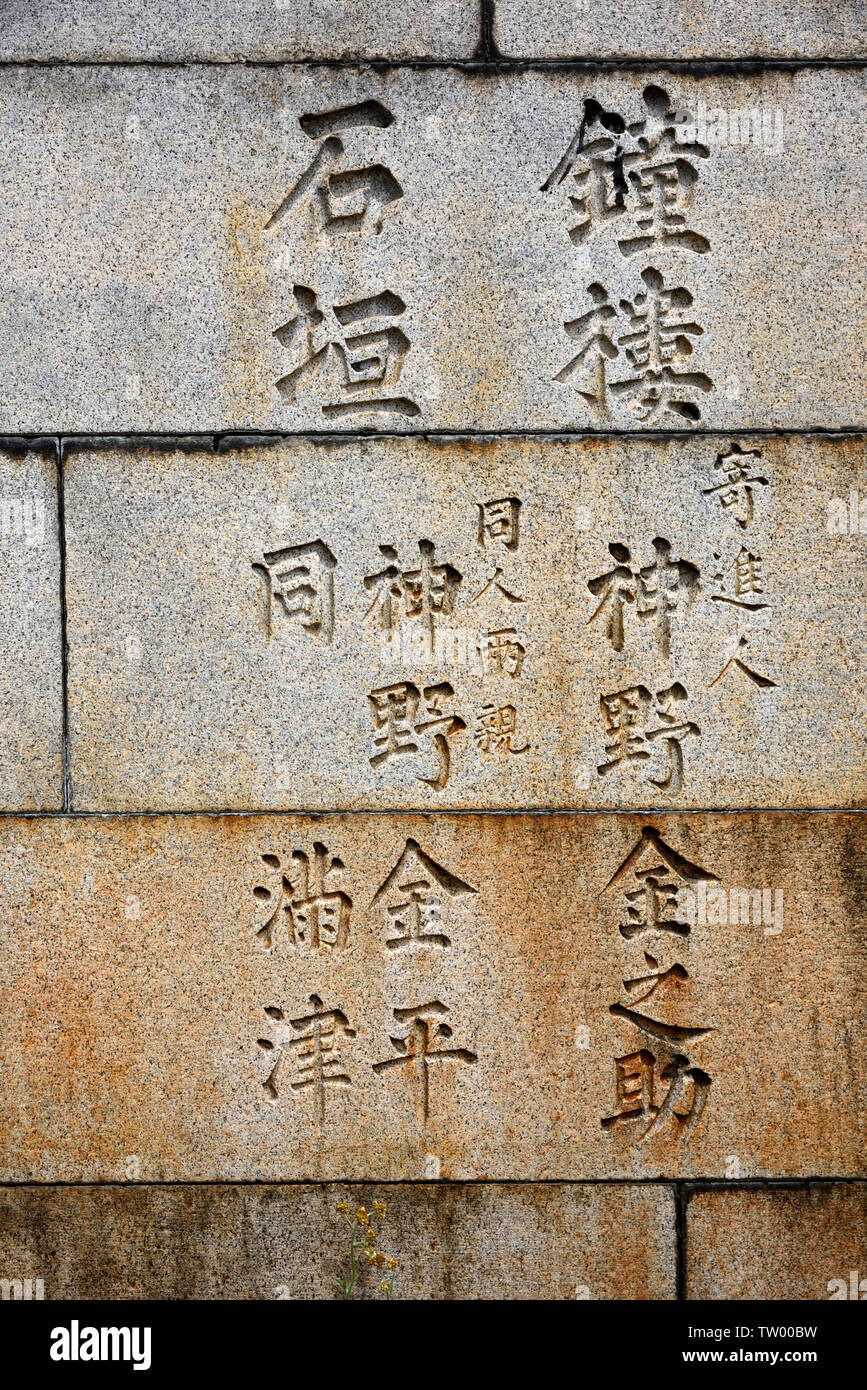 鐘樓
石垣
寄進人
神野金之助
同人両親
神野金平
同満津
alamy
Image ID: TW00BW
www.alamy.com